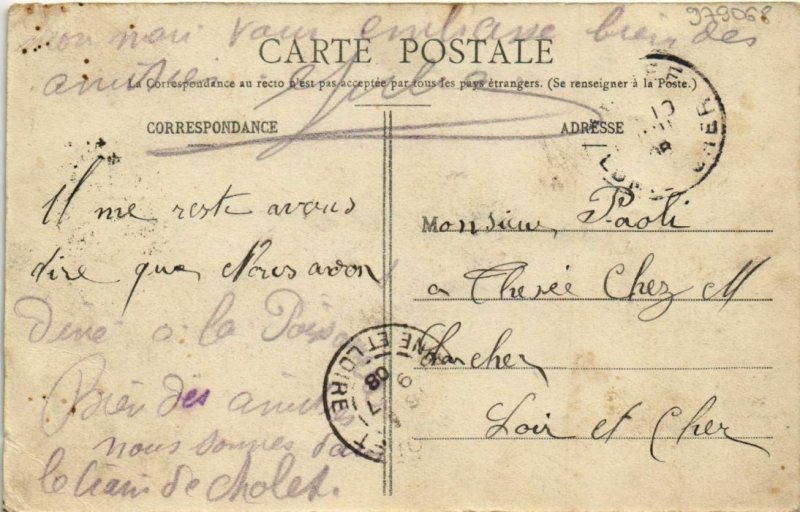 979068
mon mari vous embrasse bien des
amitiés
CARTE POSTALE
La Correspondance au recto n'est pas acceptée par tous les pays étrangers. (Se renseigner à la Poste.)
CORRESPONDANCE
Il me reste avous
dire que Nous avons
Diné a la
Bien des amitiés
nous sommes da
le train de Cholet.
ADRESSE
Monsieur Paoli
a Thesée Chez M
Loir et Cher
CHER
NE ET LOIRE
08